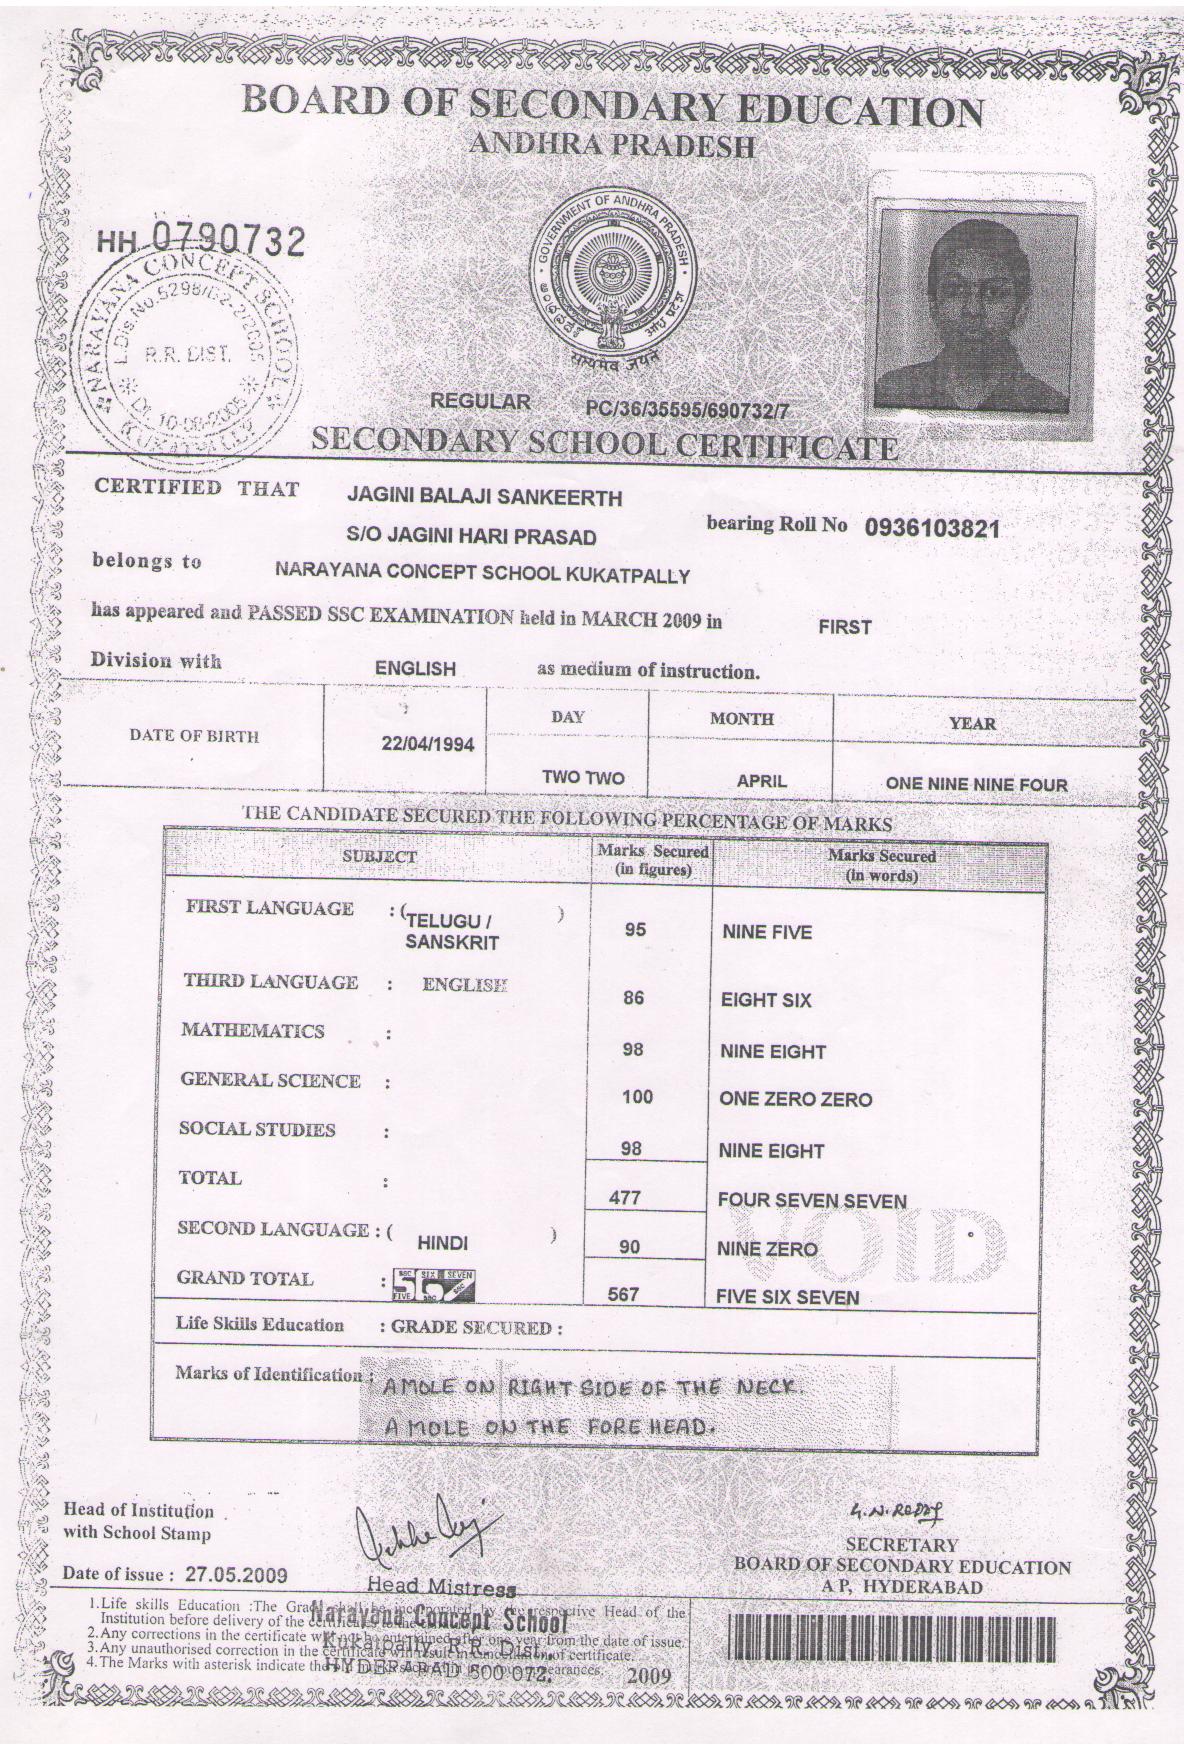 BOARD OF SECONDARY EDUCATION
ANDHRA PRADESH
HH 0790732
NARAYANA CONCEPT SCHOOL
L.Dis.No.5298/
R.R. DIST.
GOVERNMENT OF ANDHRA PRADESH
ఆంధ్రప్రదేశ్
आंध्र प्रदेश
सत्यमेव जयते
REGULAR PC/36/35595/690732/7
SECONDARY SCHOOL CERTIFICATE
CERTIFIED THAT JAGINI BALAJI SANKEERTH
S/O JAGINI HARI PRASAD bearing Roll No 0936103821
belongs to NARAYANA CONCEPT SCHOOL KUKATPALLY
has appeared and PASSED SSC EXAMINATION held in MARCH 2009 in FIRST
Division with ENGLISH as medium of instruction.
DATE OF BIRTH 22/04/1994 DAY MONTH YEAR
TWO TWO APRIL ONE NINE NINE FOUR
THE CANDIDATE SECURED THE FOLLOWING PERCENTAGE OF MARKS
SUBJECT Marks Secured (in figures) Marks Secured (in words)
FIRST LANGUAGE : (TELUGU / SANSKRIT) 95 NINE FIVE
THIRD LANGUAGE : ENGLISH 86 EIGHT SIX
MATHEMATICS : 98 NINE EIGHT
GENERAL SCIENCE : 100 ONE ZERO ZERO
SOCIAL STUDIES : 98 NINE EIGHT
TOTAL : 477 FOUR SEVEN SEVEN
SECOND LANGUAGE : ( HINDI ) 90 NINE ZERO
VOID
GRAND TOTAL : SSC SIX SEVEN FIVE SSC 567 FIVE SIX SEVEN
Life Skills Education : GRADE SECURED :
Marks of Identification : A MOLE ON RIGHT SIDE OF THE NECK.
A MOLE ON THE FORE HEAD.
Head of Institution
with School Stamp
G.N. Reddy
SECRETARY
BOARD OF SECONDARY EDUCATION
A P, HYDERABAD
Date of issue : 27.05.2009
Head Mistress
Narayana Concept School
Kukatpally, R.R. Dist.
HYDERABAD 500 072.
1.Life skills Education :The Grade shall be incorporated by the respective Head of the
Institution before delivery of the certificates to the
2.Any corrections in the certificate will not be entertained after one year from the date of issue.
3.Any unauthorised correction in the certificate will result in cancellation of certificate.
4.The Marks with asterisk indicate the marks secured in previous appearances.
2009